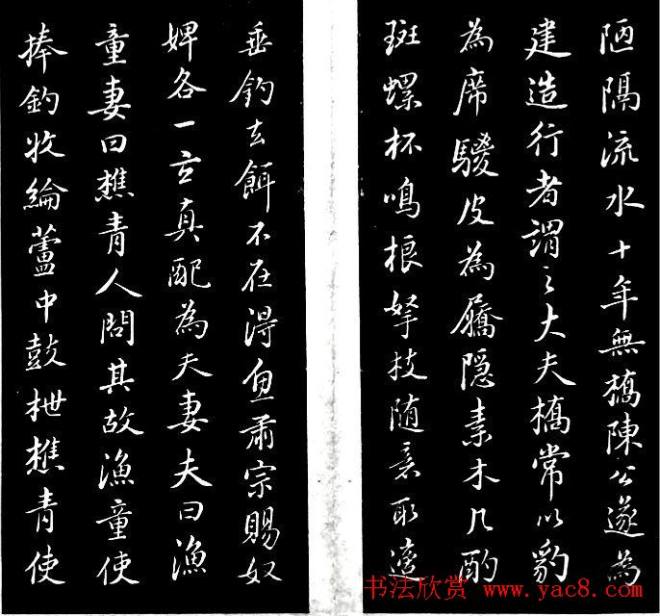 陋隔流水十年無橋陳公遂為
建造行者謂之大夫橋常以豹
為席騣皮為屩隱素木几酌
斑螺杯鳴榔拏杖随意取適
垂釣去餌不在得魚肅宗賜奴
婢各一玄真配為夫妻夫曰漁
童妻曰樵青人問其故漁童使
捧釣收綸蘆中鼓枻樵青使
书法欣赏 www.yac8.com